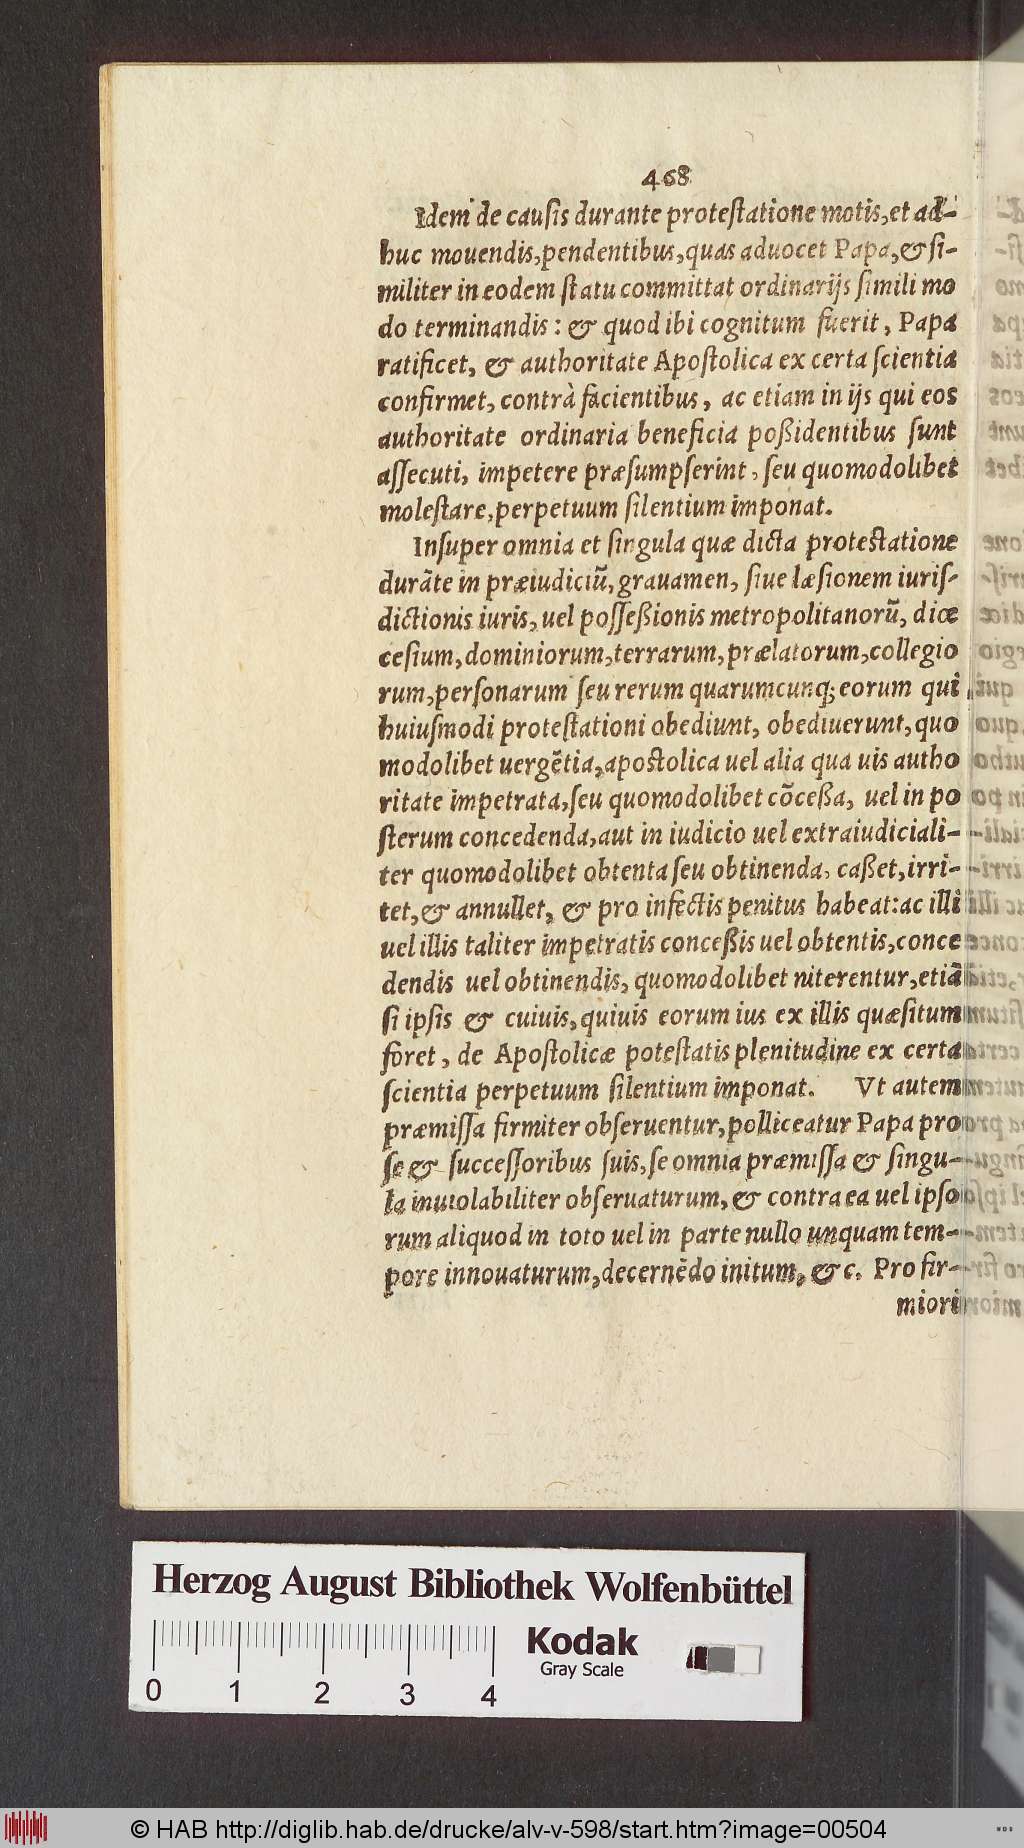 468
Idem de causis durante protestatione motis, et ad-
huc mouendis, pendentibus, quas aduocet Papa, & si-
militer in eodem statu committat ordinarijs simili mo
do terminandis: & quod ibi cognitum fuerit, Papa
ratificet, & authoritate Apostolica ex certa scientia
confirmet, contrà facientibus, ac etiam in ijs qui eos
authoritate ordinaria beneficia poßidentibus sunt
assecuti, impetere præsumpserint, seu quomodolibet
molestare, perpetuum silentium imponat.
Insuper omnia et singula quæ dicta protestatione
durāte in præiudiciū, grauamen, siue læsionem iuris-
dictionis iuris, uel posseßionis metropolitanorū, diœ
cesium, dominiorum, terrarum, prælatorum, collegio
rum, personarum seu rerum quarumcunq; eorum qui
huiusmodi protestationi obediunt, obediuerunt, quo
modolibet uergētia, apostolica uel alia qua uis autho
ritate impetrata, seu quomodolibet cōceßa, uel in po
sterum concedenda, aut in iudicio uel extraiudiciali-
ter quomodolibet obtenta seu obtinenda, caßet, irri-
tet, & annullet, & pro infectis penitus habeat: ac illi
uel illis taliter impetratis conceßis uel obtentis, conce
dendis uel obtinendis, quomodolibet niterentur, etiā
si ipsis & cuiuis, quiuis eorum ius ex illis quæsitum
foret, de Apostolicæ potestatis plenitudine ex certa
scientia perpetuum silentium imponat. Vt autem
præmissa firmiter obseruentur, polliceatur Papa pro
se & successoribus suis, se omnia præmissa & singu-
la inuiolabiliter obseruaturum, & contra ea uel ipso
rum aliquod in toto uel in parte nullo unquam tem-
pore innouaturum, decernēdo initum, &c. Pro fir-
miori
Herzog August Bibliothek Wolfenbüttel
Kodak
Gray Scale
0 1 2 3 4
© HAB http://diglib.hab.de/drucke/alv-v-598/start.htm?image=00504